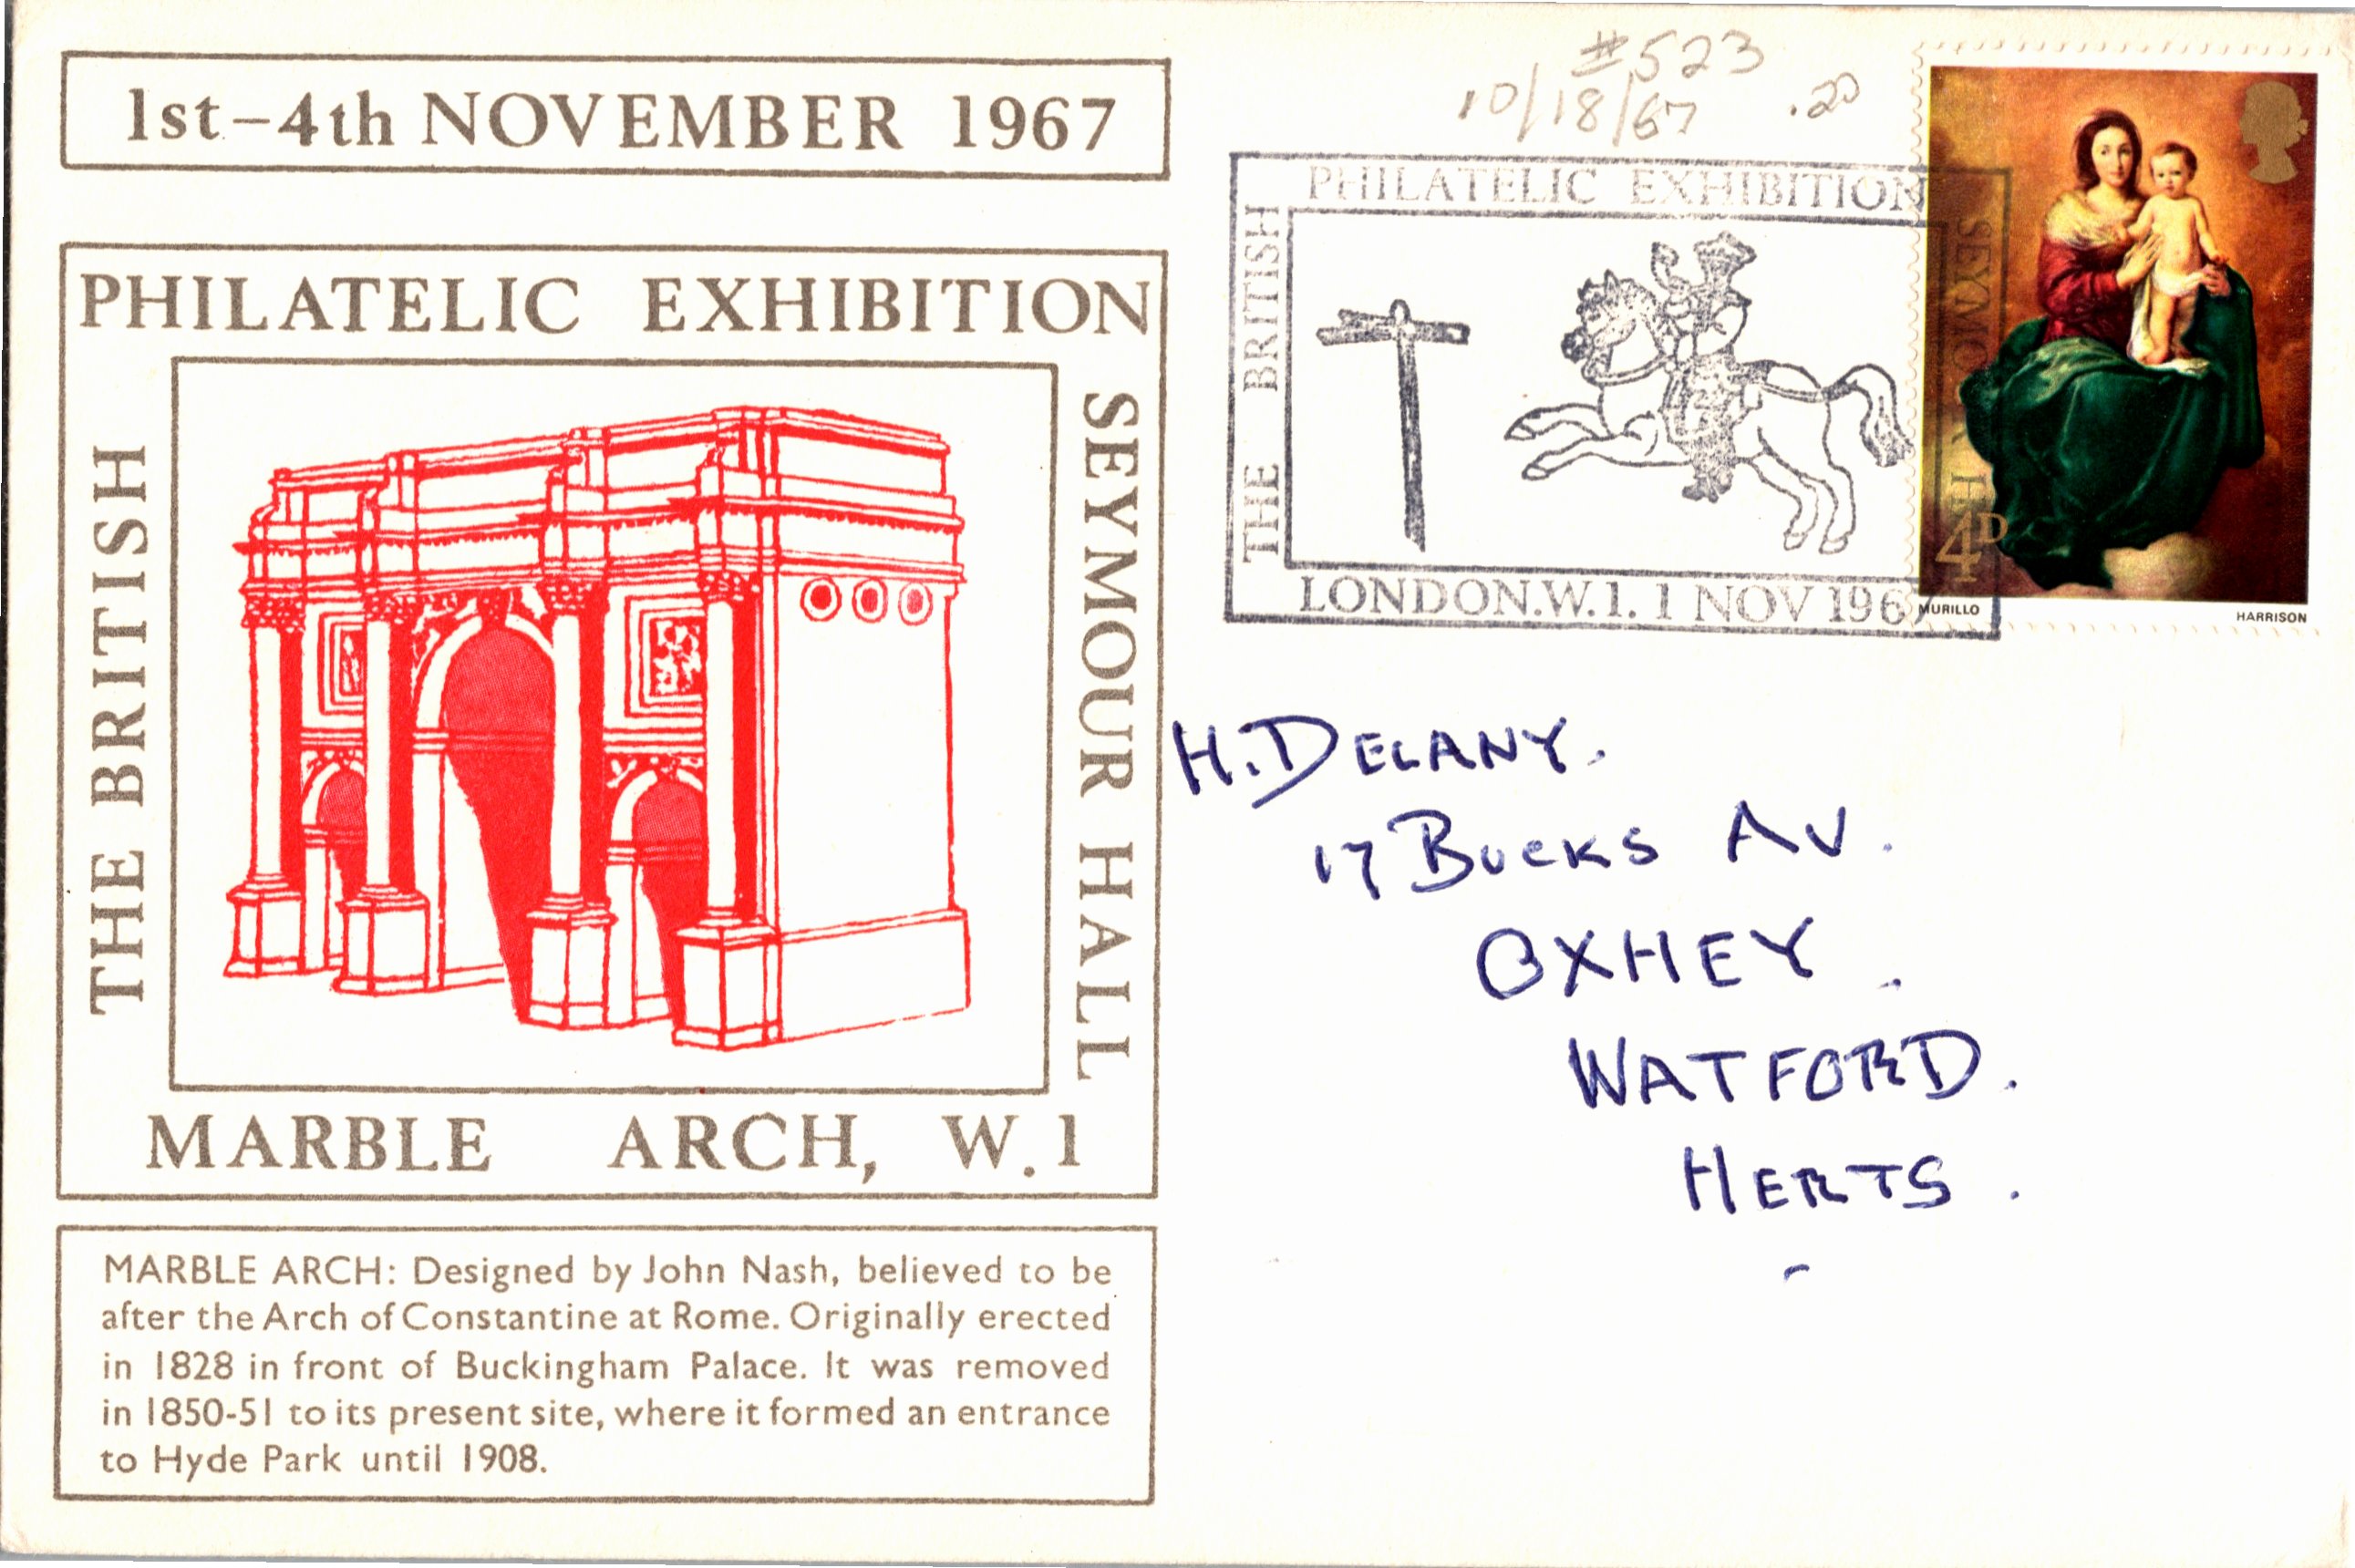 1st–4th NOVEMBER 1967
PHILATELIC EXHIBITION
THE BRITISH
SEYMOUR HALL
MARBLE ARCH, W.1
MARBLE ARCH: Designed by John Nash, believed to be
after the Arch of Constantine at Rome. Originally erected
in 1828 in front of Buckingham Palace. It was removed
in 1850-51 to its present site, where it formed an entrance
to Hyde Park until 1908.
#523
10/18/67 .20
PHILATELIC EXHIBITION
THE BRITISH
SEYMOUR H
LONDON.W.1. 1 NOV 1967
4D
MURILLO
HARRISON
H. DELANY.
17 BUCKS AV.
OXHEY.
WATFORD.
HERTS.